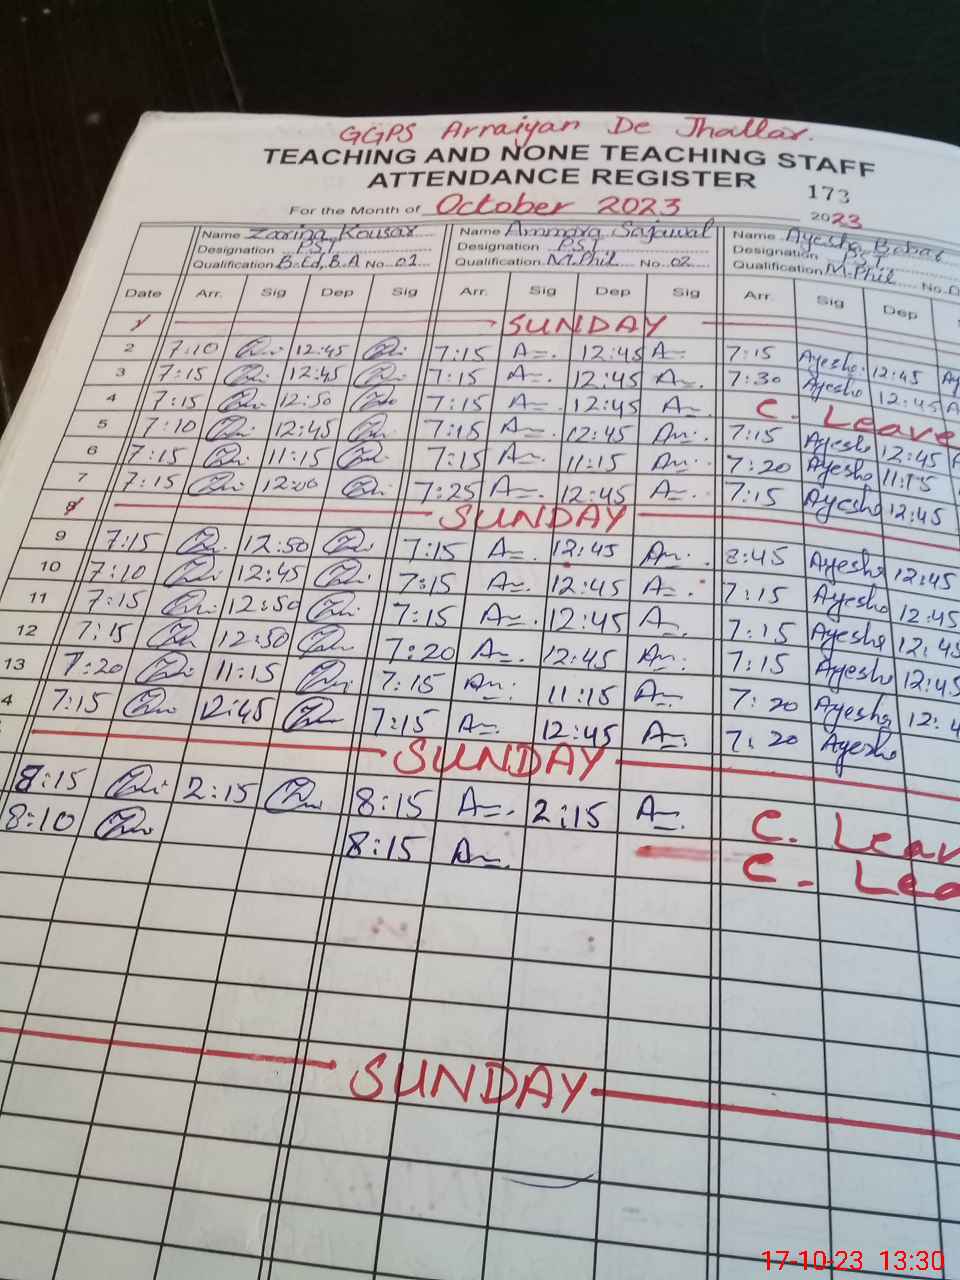 GGPS Arraiyan De Jhallar.
TEACHING AND NONE TEACHING STAFF
ATTENDANCE REGISTER 173
For the Month of October 2023 2023
Name Zarina Kousar Name Ammara Sajawal Name Ayesha Babar
Designation PST Designation PST Designation
Qualification B.Ed, B.A No 02 Qualification M.Phil No 02 Qualification M.Phil No
Date Arr. Sig Dep Sig Arr. Sig Dep Sig Arr. Sig Dep
1 SUNDAY
2 7:10 12:45 7:15 12:45 7:15 Ayesha 12:45
3 7:15 12:45 7:15 12:45 7:30 Ayesha 12:45
4 7:15 12:50 7:15 12:45 C. Leave
5 7:10 12:45 7:15 12:45 7:15 Ayesha 12:45
6 7:15 11:15 7:15 11:15 7:20 Ayesha 11:15
7 7:15 12:00 7:25 12:45 7:15 Ayesha 12:45
8 SUNDAY
9 7:15 12:50 7:15 12:45 8:45 Ayesha 12:45
10 7:10 12:45 7:15 12:45 7:15 Ayesha 12:45
11 7:15 12:50 7:15 12:45 7:15 Ayesha 12:45
12 7:15 12:50 7:20 12:45 7:15 Ayesha 12:45
13 7:20 11:15 7:15 11:15 7:20 Ayesha 12:4
4 7:15 12:45 7:15 12:45 7:20 Ayesha
SUNDAY
8:15 2:15 8:15 2:15 C. Leav
8:10 8:15 C. Lea
SUNDAY
17-10-23 13:30